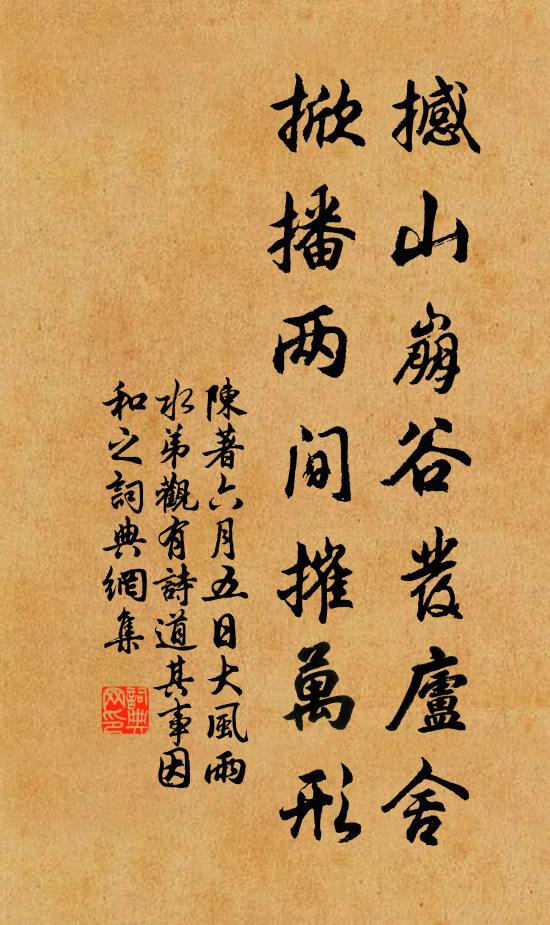 撼山崩谷發廬舍
掀播两間摧萬形
陳著六月五日大風雨
水弟觀有詩道其事因
和之詞典網集
詞典网印